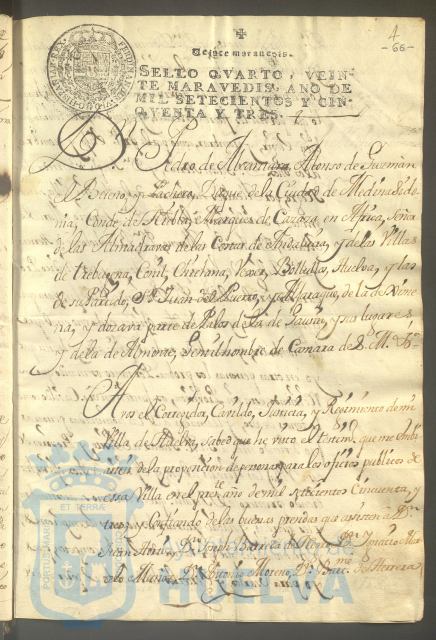 4
-66-
Veinte maravedis.
SELLO QVARTO, VEIN-
TE MARAVEDIS, AÑO DE
MIL SETECIENTOS Y CIN-
QVENTA Y TRES.
Dn. Pedro de Alcantara Alonso de Guzman
el Bueno, y Pacheco, Duque de la Ciudad de Medina Sido
nia, Conde de Niebla, Marques de Cazaza en Africa, Señor
de las Almadravas de las Costas de Andalucia, y de las Villas
de Trebugena, Conil, Chiclana, Vexer, Bollullos, Huelva, y las
de su Partido, Sn. Juan del Puerto, y de la
y parte de Palos y sus lugares
y de la de Almonte, Gentilhombre de Camara de S. M.
A vos el Correxidor, Cavildo, Justicia, y Reximiento de mi
Villa de Huelva, saved que he visto el Testimo. que me
de la proposicion de personas para los oficios publicos de
esa Villa en el preste. año de mil setecientos Cinquenta, y
tres, y Confiando de las buenas prendas que asisten a Dn.
Juan Dn. Joseph Dn. Ignacio
Dn. Antonio Moreno, Dn. de Herrera
PORTUS MARIS
ET TERRÆ
CUSTODIA
Ayuntamiento de
HUELVA